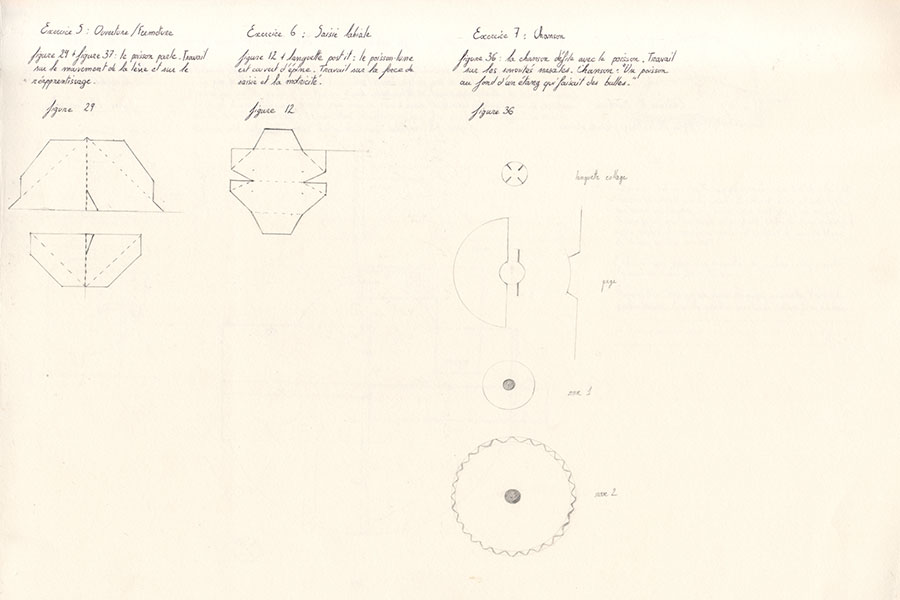 Exercice 5 : Ouverture / Fermeture
figure 29 + figure 37 : le poisson parle. Travail
sur le mouvement de la lèvre et sur le
réapprentissage.
figure 29
Exercice 6 : Saisie labiale
figure 12 + languette post it : le poisson-lune
est couvert d'épine. Travail sur la force de
saisie et la motricité.
figure 12
Exercice 7 : Chanson
figure 36 : la chanson défile avec le poisson. Travail
sur les sonorités nasales. Chanson : "Un poisson
au fond d'un étang qui faisait des bulles."
figure 36
languette collage
page
roue 1
roue 2